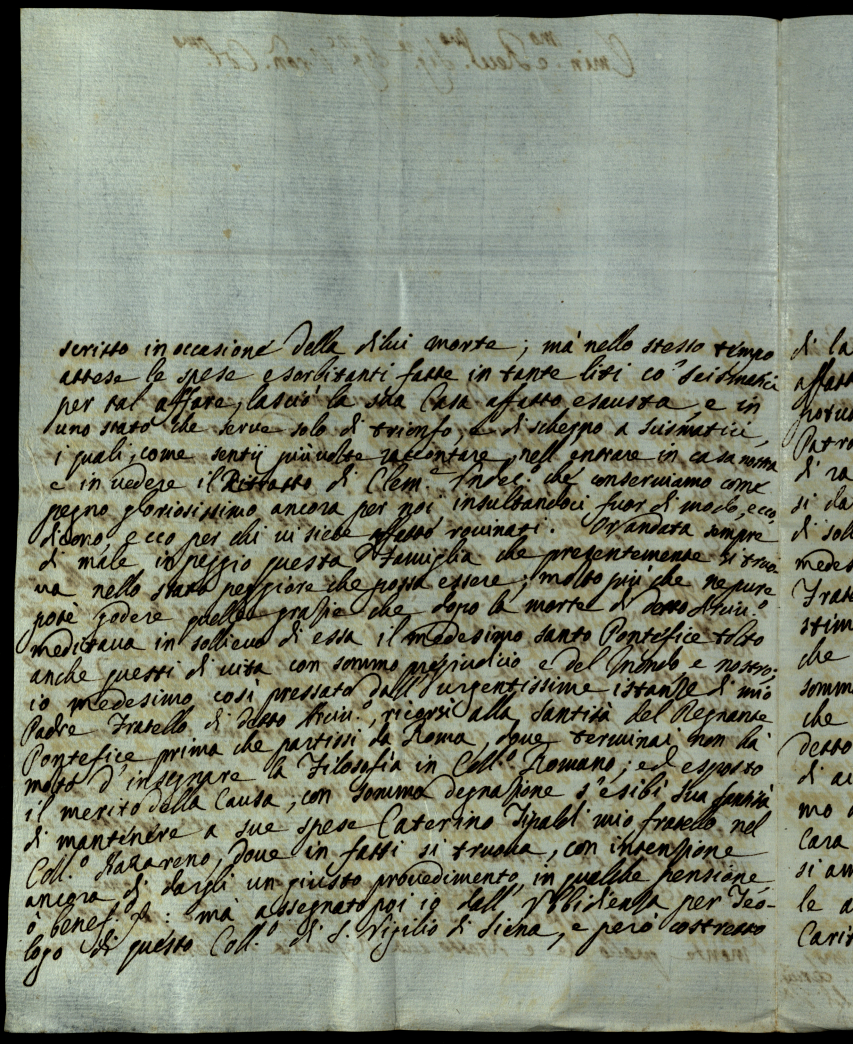 scritto in occasione della di lui morte; mà nello stesso tempo
attese le spese esorbitanti fatte in tante liti cō Scismatici
per tal affare, lasciò la sua Casa affatto esausta, e in
uno stato che serve solo di trionfo, e di scherno a Scismatici,
i quali, come sentij più volte raccontare, nell'entrare in casa nostra
e in vedere il Ritratto di Clem.e Undec.o che conserviamo come
pegno gloriosissimo ancora per noi insultandoci fuor di modo, ecco,
dicono, ecco per chi vi siete affatto rovinati. Or andata sempre
di male in peggio questa Famiglia che presentemente si truo-
va nello stato peggiore che possa essere; molto più che ne pure
potè godere quelle grazie che dopo la morte di detto Arciv.o
meditava in sollievo di essa il medesimo santo Pontefice tolto
anche questi di vita con sommo pregiudicio e del Mondo, e nostro;
io medesimo così pressato dall'urgentissime istanze di mio
Padre Fratello di detto Arciv.o, ricorsi alla Santità del Regnante
Pontefice prima che partissi da Roma, dove terminai non hà
molto d'insegnare la Filosofia in Coll.o Romano; ed esposto
il merito della Causa, con somma degnazione s'esibì Sua Santità
di mantenere a sue spese Caterino Tipaldi mio fratello nel
Coll.o Nazareno, dove in fatti si truova, con intenzione
ancora di dargli un giusto provedimento in qualche pensione
ò benef.o: mà assegnato poi io dall'Ubbidienza per Teo-
logo di questo Coll.o di S. Vigilio di Siena, e però costretto
di la
affatt
Patro
di
si da
di soll
medes
Frate
stim
che
somm
che
detto
di
mo
Cara
si am
le
Carit